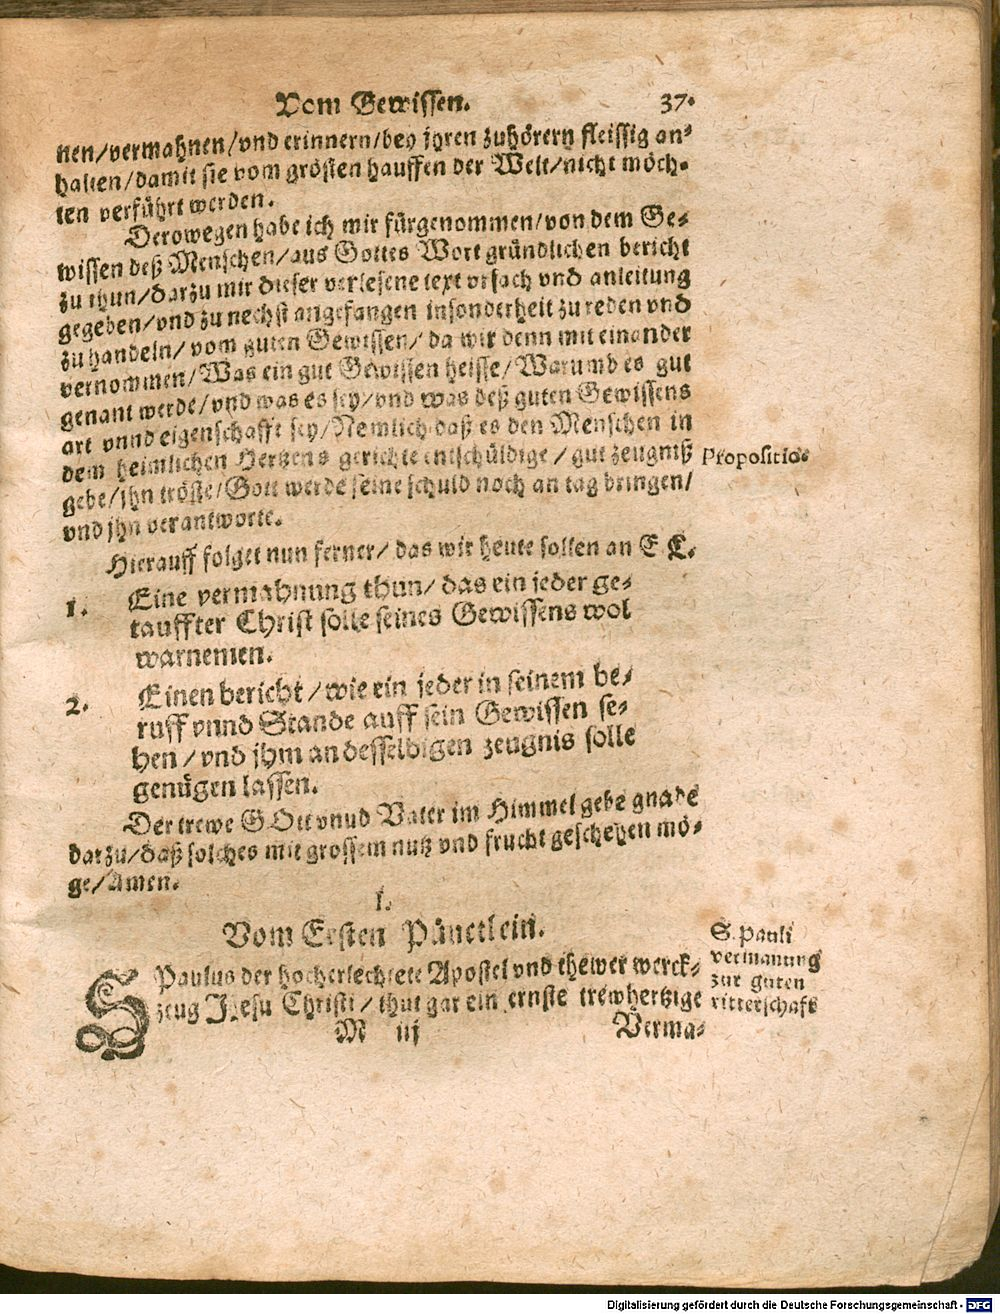 Vom Gewissen. 37.
nen/vermahnen/vnd erinnern/bey jhren zuhörern fleissig an-
halten/damit sie vom grösten hauffen der Welt/nicht möch-
ten verführt werden.
Derowegen habe ich mir fürgenommen/von dem Ge-
wissen deß Menschen/aus Gottes Wort gründlichen bericht
zu thun/darzu mir dieser verlesene text vrsach vnd anleitung
gegeben/vnd zu nechst angefangen insonderheit zu reden vnd
zu handeln/vom guten Gewissen/da wir denn mit einander
vernommen/Was ein gut Gewissen heisse/Warumb es gut
genant werde/vnd was es sey/vnd was deß guten Gewissens
art vnnd eigenschafft sey/Nemlich daß es den Menschen in
dem heimlichen Hertzens gerichte entschüldige/gut zeugniß
Propositio.
gebe/jhn tröste/Gott werde seine schuld noch an tag bringen/
vnd jhn verantworte.
Hierauff folget nun ferner/das wir heute sollen an E L.
1. Eine vermahnung thun/das ein jeder ge-
tauffter Christ solle seines Gewissens wol
warnemen.
2. Einen bericht/wie ein jeder in seinem be-
ruff vnnd Stande auff sein Gewissen se-
hen/vnd jhm an desselbigen zeugnis solle
genügen lassen.
Der trewe GOtt vnud Vater im Himmel gebe gnade
darzu/daß solches mit grossem nutz vnd frucht geschehen mö-
ge/Amen.
I.
Vom Ersten Pünctlein.
S Paulus der hocherleuchtete Apostel vnd thewer werck-
zeug JEsu Christi/thut gar ein ernste trewhertzige
S. Pauli
vermanung
zur guten
ritterschafft
M iij Verma-
Digitalisierung gefördert durch die Deutsche Forschungsgemeinschaft - DFG